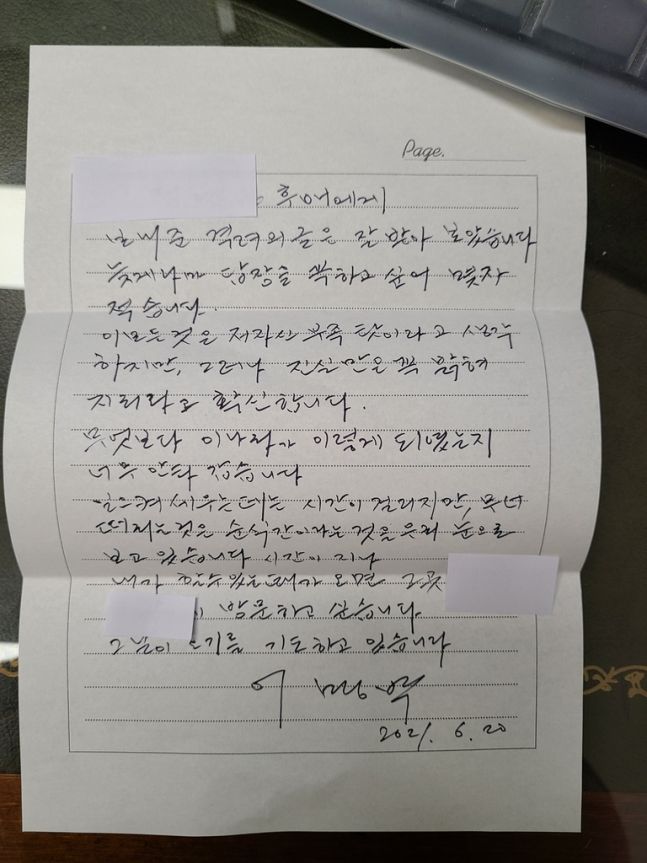 Page.
후배에게
보내준 격려의 글은 잘 받아 보았습니다
늦게나마 답장을 쓰하고 싶어 몇자
적습니다.
이모든것은 저자신 부족 탓이라고 생각
하지만, 그러나 진실만은 꼭 밝혀
지리라고 확신합니다.
무엇보다 이나라가 이렇게 되였는지
너무 안타 갑습니다
일으켜 세우는데는 시간이 걸리지만, 무너
떠지는것은 순식간이라는 것을 우리 눈으로
보고 있습니다 시간이 지나
내가 할수있는때가 오면 그곳
방문하고 싶습니다
그날이 오기를 기도하고 있습니다
이명박
2021. 6. 20